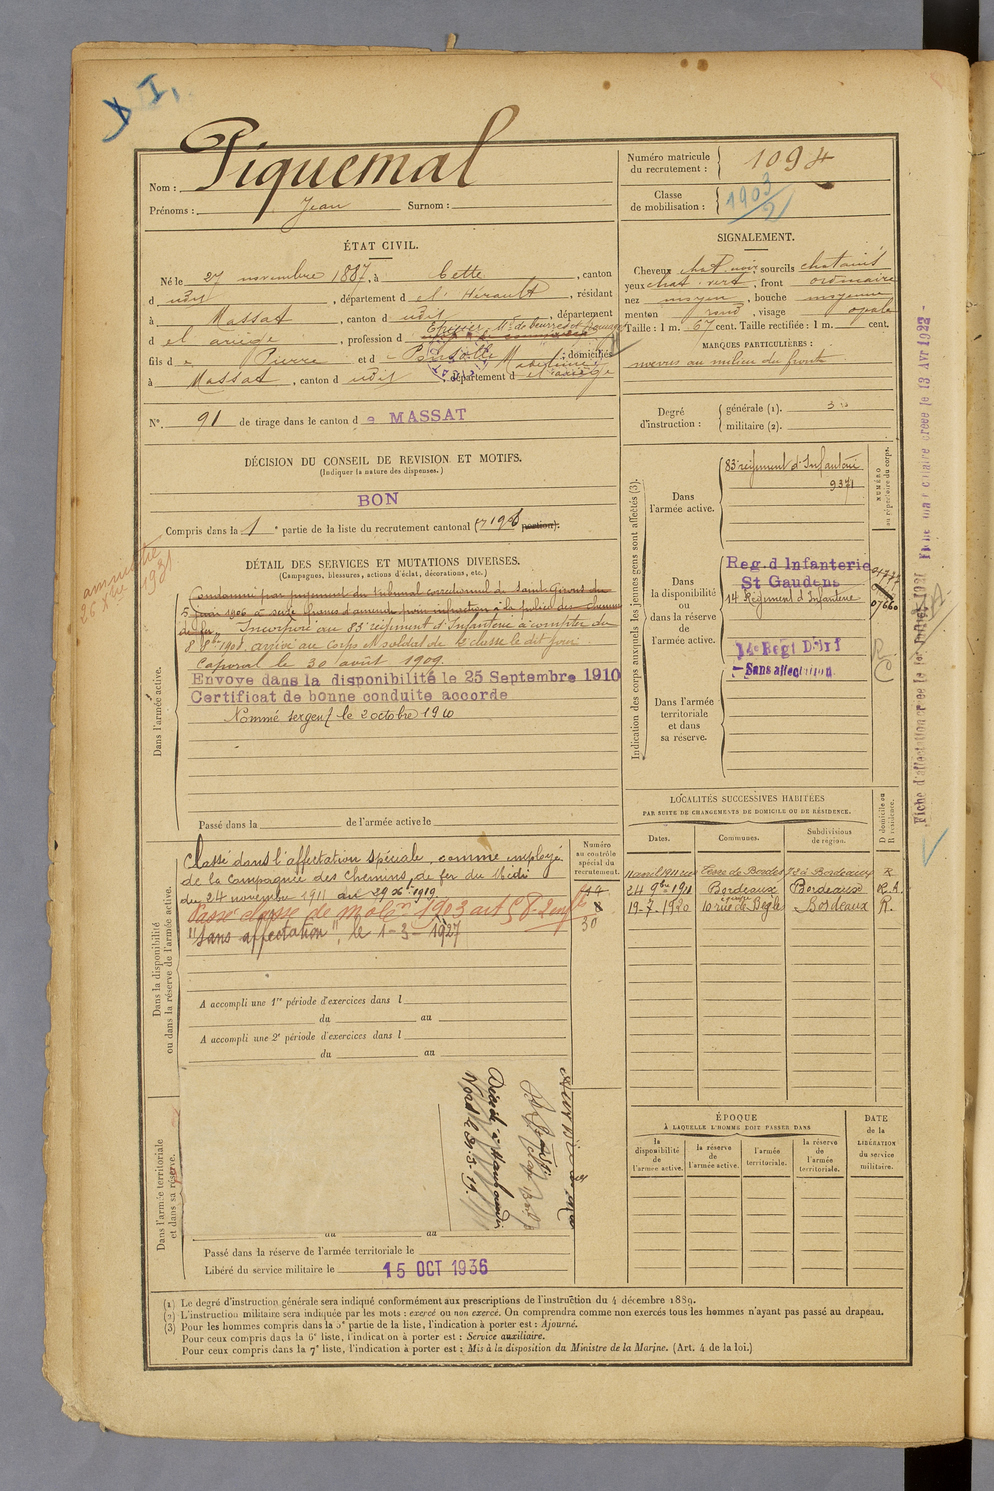 I,
Nom : Piquemal
Prénoms : Jean Surnom :
Numéro matricule du recrutement : 1094
Classe de mobilisation : 1903/2
ÉTAT CIVIL.
Né le 27 novembre 1887, à Cette, canton
d udit, département d e l'Hérault, résidant
à Massat, canton d udit, département
d e l'ariège, profession d Epicier, Md de beurres et fromages
fils d e Pierre et d ; domiciliés
à Massat, canton d udit, département d e l'ariège
N° 91 de tirage dans le canton d e MASSAT
DÉCISION DU CONSEIL DE REVISION ET MOTIFS.
(Indiquer la nature des dispenses.)
BON
Compris dans la 1e partie de la liste du recrutement cantonal ( portion).
SIGNALEMENT.
Cheveux chat. noir, sourcils chatains
yeux chat. vert, front ordinaire
nez moyen, bouche moyenne
menton rond, visage opale
Taille : 1 m. 67 cent. Taille rectifiée : 1 m. cent.
MARQUES PARTICULIÈRES :
naevus au milieu du front
Degré d'instruction : générale (1). 3
militaire (2).
amnistié
26 Xbre 1931
DÉTAIL DES SERVICES ET MUTATIONS DIVERSES.
(Campagnes, blessures, actions d'éclat, décorations, etc.)
Dans l'armée active.
Condamné par jugement du tribunal correctionnel de Saint Girons du
5 mai 1906 à seize francs d'amende pour infraction à la police des chemins
de fer. Incorporé au 83e régiment d'Infanterie à compter du
8 8bre 1908. arrivé au corps et soldat de 2e classe le dit jour
Caporal le 30 août 1909.
Envoyé dans la disponibilité le 25 Septembre 1910
Certificat de bonne conduite accordé
Nommé sergent le 2 octobre 1910
Passé dans la de l'armée active le
Indication des corps auxquels les jeunes gens sont affectés (3).
NUMÉRO au répertoire du corps.
Dans l'armée active.
83e régiment d'Infanterie
9371
Dans la disponibilité ou dans la réserve de l'armée active.
Reg. d Infanterie
St Gaudens
14 Régiment d'Infanterie
07660
14e Regt D'Inf
Sans affectation
Dans l'armée territoriale et dans sa réserve.
Fiche d'affectation créée le 1er
Fiche créée le 13 Avr 1922
Dans la disponibilité ou dans la réserve de l'armée active.
Classé dans l'affectation spéciale, comme employé
de la Compagnie des Chemins de fer du Midi
du 24 novembre 1911 au 29 Xbre 1919
Passé classe de mobon 1903 art 58
"Sans affectation", le 1-3-1927
Numéro au contrôle spécial du recrutement.
30
A accompli une 1re période d'exercices dans l
du au
A accompli une 2e période d'exercices dans l
du au
LOCALITÉS SUCCESSIVES HABITÉES
PAR SUITE DE CHANGEMENTS DE DOMICILE OU DE RÉSIDENCE.
Dates. Communes. Subdivisions de région. D domicile ou R résidence.
Bordeaux R
24 9bre 1911 Bordeaux Bordeaux R.
19-7-1920 10 rue de Bègles Bordeaux R.
ÉPOQUE
À LAQUELLE L'HOMME DOIT PASSER DANS
la disponibilité de l'armée active.
la réserve de l'armée active.
l'armée territoriale.
la réserve de l'armée territoriale.
DATE de la LIBÉRATION du service militaire.
Dans l'armée territoriale et dans sa réserve.
du au
Passé dans la réserve de l'armée territoriale le
Libéré du service militaire le 15 OCT 1936
(1) Le degré d'instruction générale sera indiqué conformément aux prescriptions de l'instruction du 4 décembre 1889.
(2) L'instruction militaire sera indiquée par les mots : exercé ou non exercé. On comprendra comme non exercés tous les hommes n'ayant pas passé au drapeau.
(3) Pour les hommes compris dans la 5e partie de la liste, l'indication à porter est : Ajourné.
Pour ceux compris dans la 6e liste, l'indication à porter est : Service auxiliaire.
Pour ceux compris dans la 7e liste, l'indication à porter est : Mis à la disposition du Ministre de la Marine. (Art. 4 de la loi.)